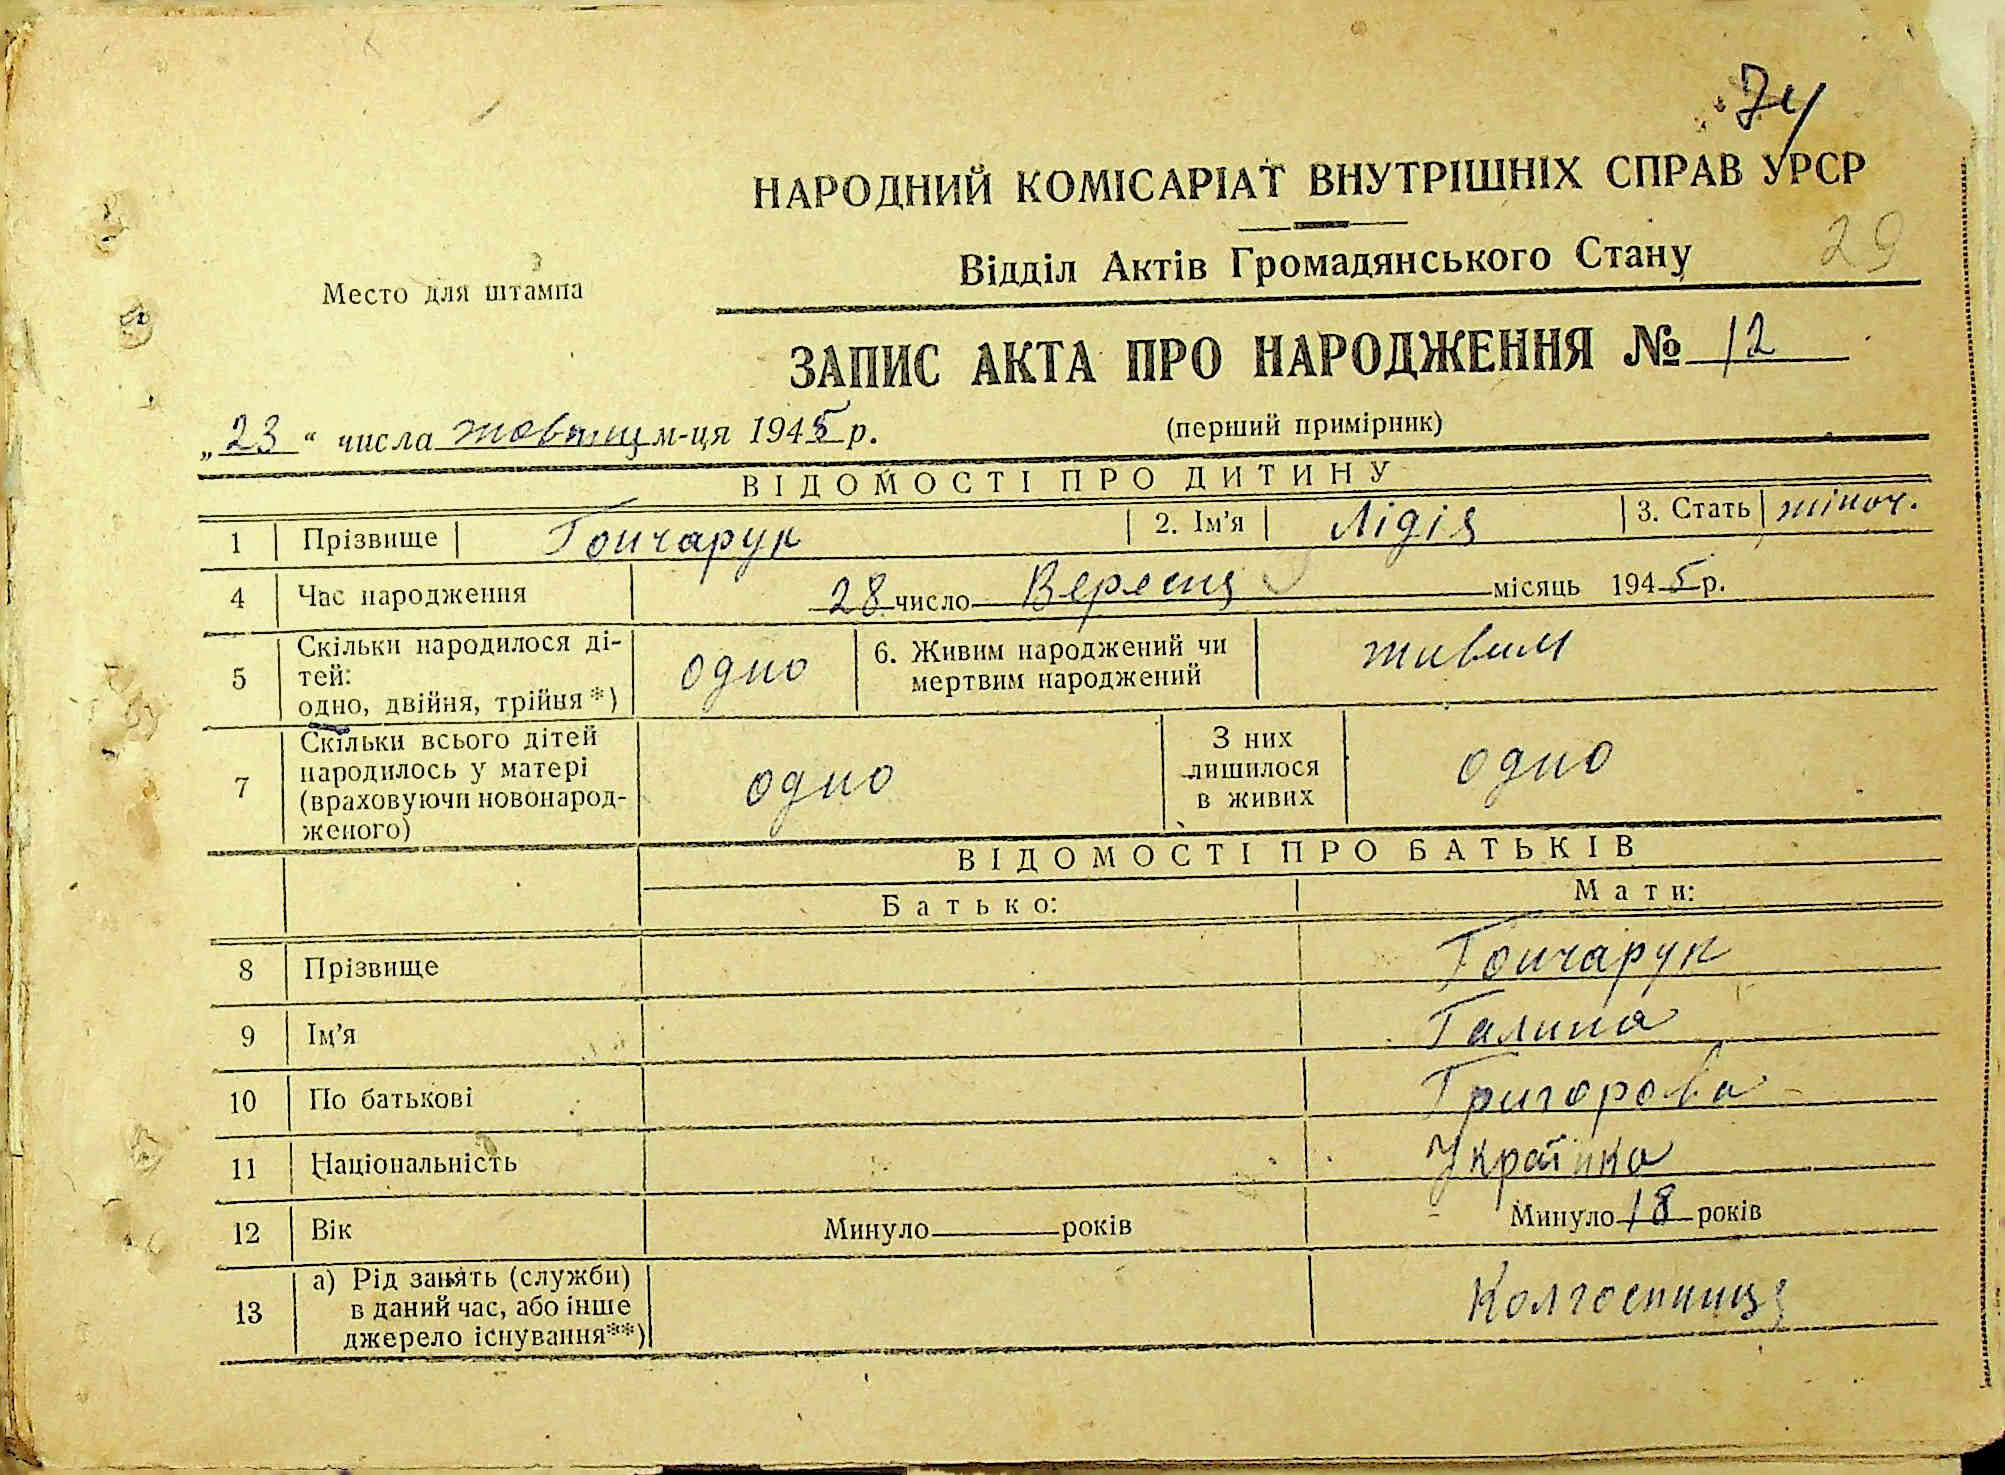 74
НАРОДНИЙ КОМІСАРІАТ ВНУТРІШНІХ СПРАВ УРСР
Відділ Актів Громадянського Стану 29
Место для штампа
ЗАПИС АКТА ПРО НАРОДЖЕННЯ № 12
„23“ числа жовтня м-ця 1945 р. (перший примірник)
ВІДОМОСТІ ПРО ДИТИНУ
1 Прізвище Гончарук 2. Ім’я Лідія 3. Стать жіноч.
4 Час народження 28 число Вересня місяць 1945 р.
5 Скільки народилося ді-
тей:
одно, двійня, трійня*) одно 6. Живим народжений чи
мертвим народжений живим
7 Скільки всього дітей
народилось у матері
(враховуючи новонарод-
женого) одно З них
лишилося
в живих одно
ВІДОМОСТІ ПРО БАТЬКІВ
Батько: Мати:
8 Прізвище Гончарук
9 Ім’я Галина
10 По батькові Григоровa
11 Національність Українка
12 Вік Минуло років Минуло 18 років
13 а) Рід занять (служби)
в даний час, або інше
джерело існування**) Колгоспниця